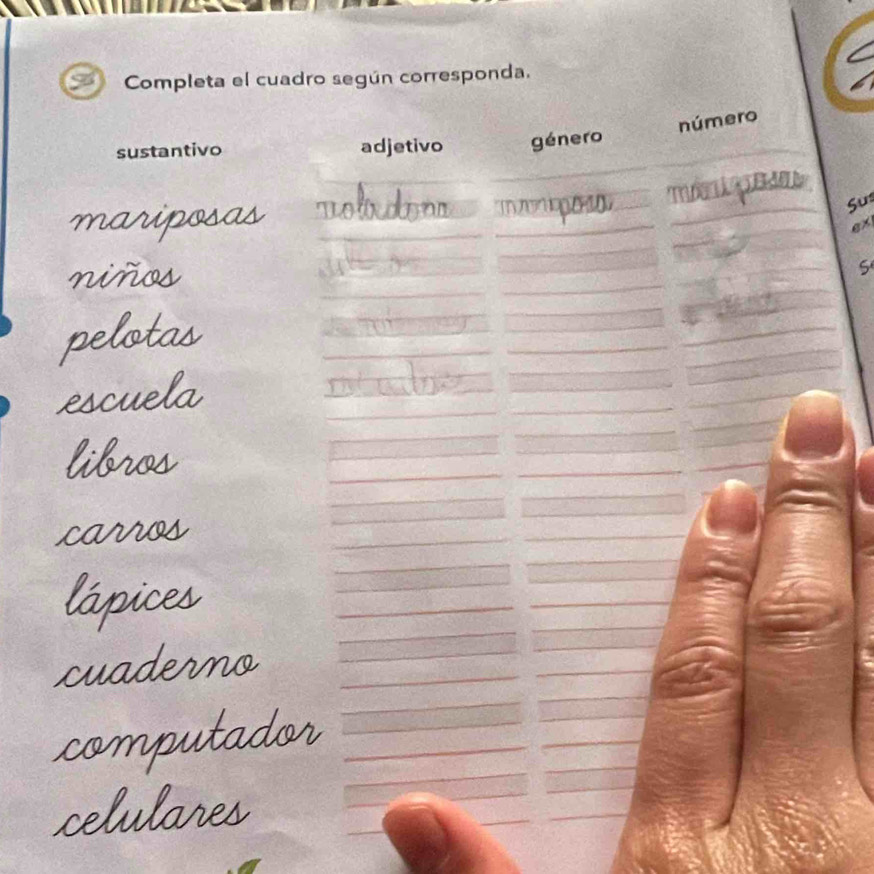 Completa el cuadro según corresponda.
sustantivo adjetivo género número
mariposas voladona mariposa mariposas
niños
pelotas
escuela
libros
carros
lápices
cuaderno
computador
celulares